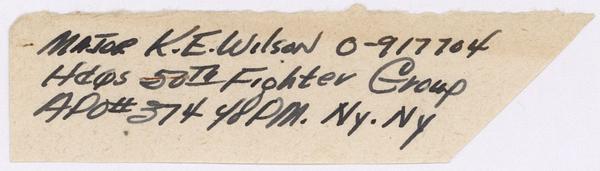 Major K.E. Wilson O-917704
Hdqs 50th Fighter Group
APO# 374 % PM. Ny. Ny